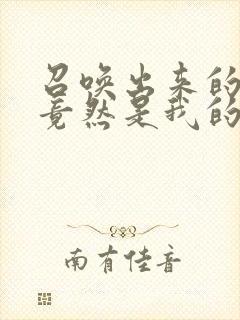 召唤出来的
竟然是我的
南有佳音